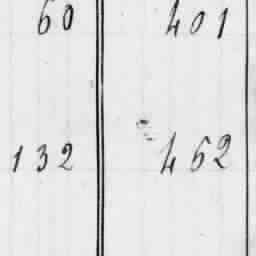 60 401
132 462